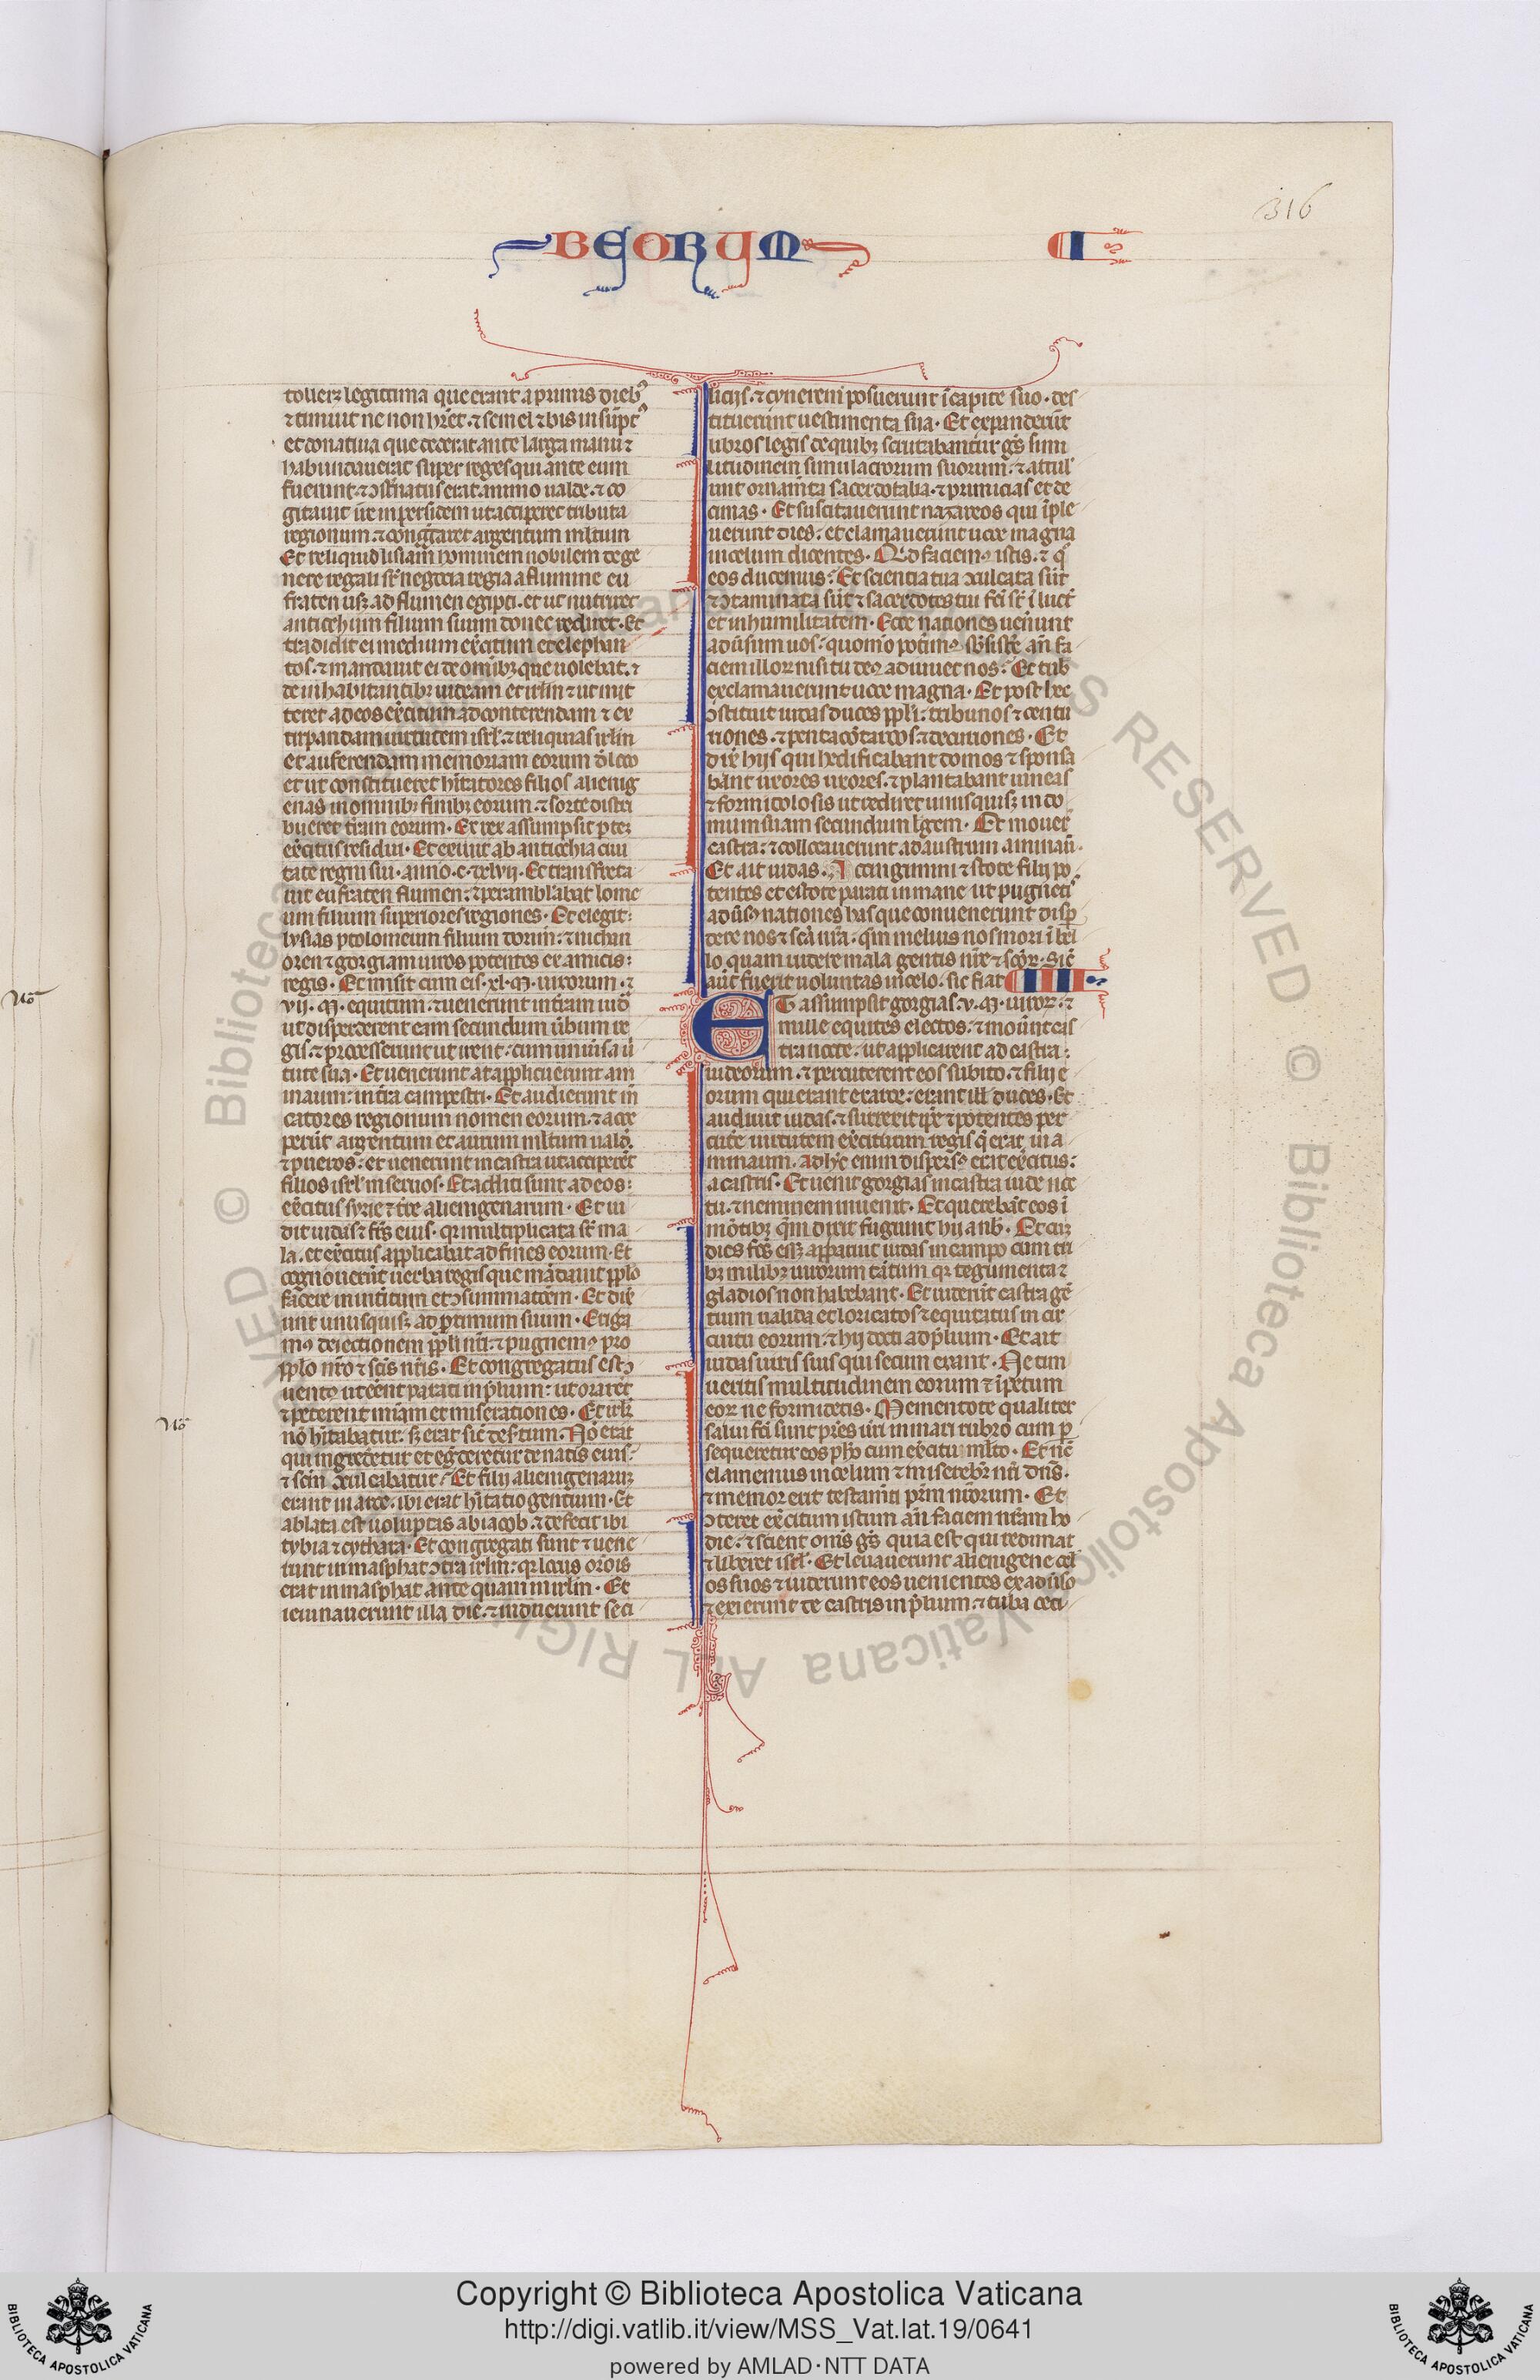 316
BEORUM
I
tolleꝛ legittima que erant a primis dieb9
⁊ timuit ne non hr̄et. ⁊ semel ⁊ bis in sūpt9
et donatiua que dederat ante larga manu ⁊
habundauerat super reges qui ante eum
fuerunt. ⁊ ꝯst̄natus erat animo ualde. ⁊ co
gitauit ire in persidem ut acciperet tributa
regionum. ⁊ cong̃garet argentum ml̄tum
Et reliquid lisiam hominem nobilem de ge
nere regali sr̄ negocia regia a flumine eu
fraten usqꝫ ad flumen egipti. et ut nutriret
antiochum filium suum donec rediret. Et
tradidit ei medium exc̄itum et elephan
tos. ⁊ mandauit ei de omībꝫ que uolebat. ⁊
de inhabitantibꝫ iudeam et irlm̄ ⁊ ut mit
teret ad eos exc̄itum ad conterendam ⁊ ex
tirpandam uirtutem isrl̄. ⁊ reliquias irlm̄
et auferendam memoriam eorum d̄ loco
et ut constitueret hītatores filios alienig
enas in omnibꝫ finibꝫ eorum. ⁊ sorte distri
bueret tr̄am eorum. Et rex assumpsit p̱teꝫ
exc̄itus residui. Et exiuit ab antiochia ciui
tate regni sui. anno. c. xlvii. Et transfreta
uit eufraten flumen: ⁊ perambulabat
superiores regiones. Et elegit:
lysias ptolomeum filium dorim: ⁊ nichan
oren ⁊ gorgiam uiros potentes ex amicis:
regis. Et misit cum eis. xl. M. uirorum. ⁊
vii. M. equitum: ⁊ uenerunt in tr̄am iud̄
ut disperderent eam secundum ūbum re
gis. ⁊ processerunt ut irent: cum uniūsa ū
tute sua. Et uenerunt at applicuerunt am
maum: in tr̄a campestri. Et audierunt m̄
catores regionum nomen eorum. ⁊ acce
perūt argentum et aurum ml̄tum ualđ.
⁊ pueros: et uenerunt in castra ut acciperēt
filios isrl̄ in seruos. Et additi sunt ad eos:
exc̄itus syrie ⁊ tr̄e alienigenarum. Et ui
dit iudas ⁊ frs̄ eius. qꝛ multiplicata st̄ ma
la. et exc̄itus applicabat ad fines eorum. Et
cognouerūt uerba regis que mādauit ppl̄o
facere in intitum et ꝯsummatōem. Et dix̄
unt unusquisqꝫ ad p̱ximum suum. Erига
m9 deiectionem ppl̄i nr̄i. ⁊ pugnem9 pro
ppl̄o nr̄o ⁊ scīs nr̄is. Et congregatus est ꝯ
uentꝰ ut eēnt parati in p̄lium: ut orarēt
⁊ peterent miām et miserationes. Et irlm̄
nō hītabatur. sꝫ erat sic̄ desr̄tum. Nō erat
qui ingredētur et eg̃deretur de natis eius:
⁊ scm̄ ꝯculcabatur. Et filij alienigenaruꝫ
erant in arce. ibi erat hītatio gentium. Et
ablata est uoluptas ab iacob. ⁊ defecit ibi
tybia ⁊ cythara. Et congregati sunt ⁊ uene
runt in masphat ꝯtra irlm̄: qꝛ locus orōis
erat in masphat ante quam in irlm̄. Et
ieiunauerunt illa die. ⁊ induerunt seci
licijs. ⁊ cynerem posuerunt ī capite suo. des
tituerunt uestimenta sua. Et expanderūt
libros legis de quibꝫ scrutabantur gs̄ simi
litudinem simulacrorum suorum. ⁊ attul
unt ornam̄ta sacerdotalia. ⁊ primicias et de
cimas. Et suscitauerunt nazareos qui īple
uerunt dies: et clamauerunt uoce magna
in celum dicentes. Qͥd faciem9 istis. ⁊ qͦ
eos ducemus: Et scientia tua ꝯculcata sūt
⁊ ꝯtaminata sūt ⁊ sacerdotes tui fc̄i st̄ ī luct̄
et in humilitatem. Ecce nationes uen̄unt
adūsum nos: quomō potim9 sb̄siste an̄ fa
ciem illoꝝ nisi tu de9 adiuuet nos: Et tub̄
exclamauerunt uoce magna. Et post hec
ꝯstituit iudas duces ppl̄i: tribunos ⁊ centu
riones. ⁊ pentacōtarcos. ⁊ decuriones. Et
dix̄ hijs qui hedificabant domos ⁊ sponsa
bant uxores uxores. ⁊ plantabant uineas
⁊ formidolosis ut rediret unusquisqꝫ in do
mum suam secundum lḡem. Et mouer̄
castra: ⁊ collocauerunt ad austrum ammaū.
Et ait iudas. Accingimini ⁊ stote filij po
tentes et estote parati in mane ut pugneti9
adūs9 nationes has que conuenerunt disp̱
dere nos ⁊ scā nr̄a. qm̄ melius nos mori ī bel
lo. quam uidere mala gentis nr̄e ⁊ scōꝝ. Sic̄
aūt fuerit uoluntas in celo. sic fiat IIII
ET assumpsit gorgias. v. M. uiroꝝ. ⁊
mille equites electos: ⁊ mouūnt cas
tra nocte. ut applicarent ad castra:
iudeorum. ⁊ percuterent eos subito. ⁊ filij e
orum qui erant ex arce: erant ill̄ duces. Et
audiuit iudas. ⁊ surrexit ip̄e ⁊ potentes per
cute uirtutem exc̄ituum regis q̄ erat in a
mmaum. Adhc̄ enim dispers9 erat exc̄itus:
a castris. Et uenit gorgias in castra iude noc
tu. ⁊ neminem inuenit. Et querebāt eos ī
mōtibꝫ qm̄ dixit fugiunt hij a nob̄. Et cuꝫ
dies fcs̄ eēt apparuit iudas in campo cum tri
bꝫ milibꝫ uirorum tātum qꝛ tegumenta ⁊
gladios non habebant. Et uiderūt castra gē
tium ualida et loricatos ⁊ equitatus in cir
cuitu eorum. ⁊ hij docti ad p̄lium. Et ait
iudas uiris suis qui secum erant. Ne tim
ueritis multitudinem eorum ⁊ īpetum
eoꝝ ne formidetis. Mementote qualiter
salui fc̄i sunt pr̄es nr̄i in mari rubro cum p̱
sequeretur eos pho cum exc̄itu ml̄to. Et nc̄
clamemus in celum ⁊ miserebr̄ nr̄i dns̄.
⁊ memor erit testam̄ti pr̄m nr̄orum. Et
ꝯteret exc̄itum istum an̄ faciem nr̄am ho
die. ⁊ scient oms̄ gs̄ quia est qui redimat
⁊ liberet isrl̄. Et leuauerunt alienigene ocl̄
os suos ⁊ uiderunt eos uenientes ex adūso
⁊ exierunt de castris in p̄lium. ⁊ tuba ceci
No
No
Copyright © Biblioteca Apostolica Vaticana
http://digi.vatlib.it/view/MSS_Vat.lat.19/0641
powered by AMLAD·NTT DATA
BIBLIOTECA APOSTOLICA VATICANA
BIBLIOTECA APOSTOLICA VATICANA
© Biblioteca Apostolica Vaticana ALL RIGHTS RESERVED © Biblioteca Apostolica Vaticana ALL RIGHTS RESERVED